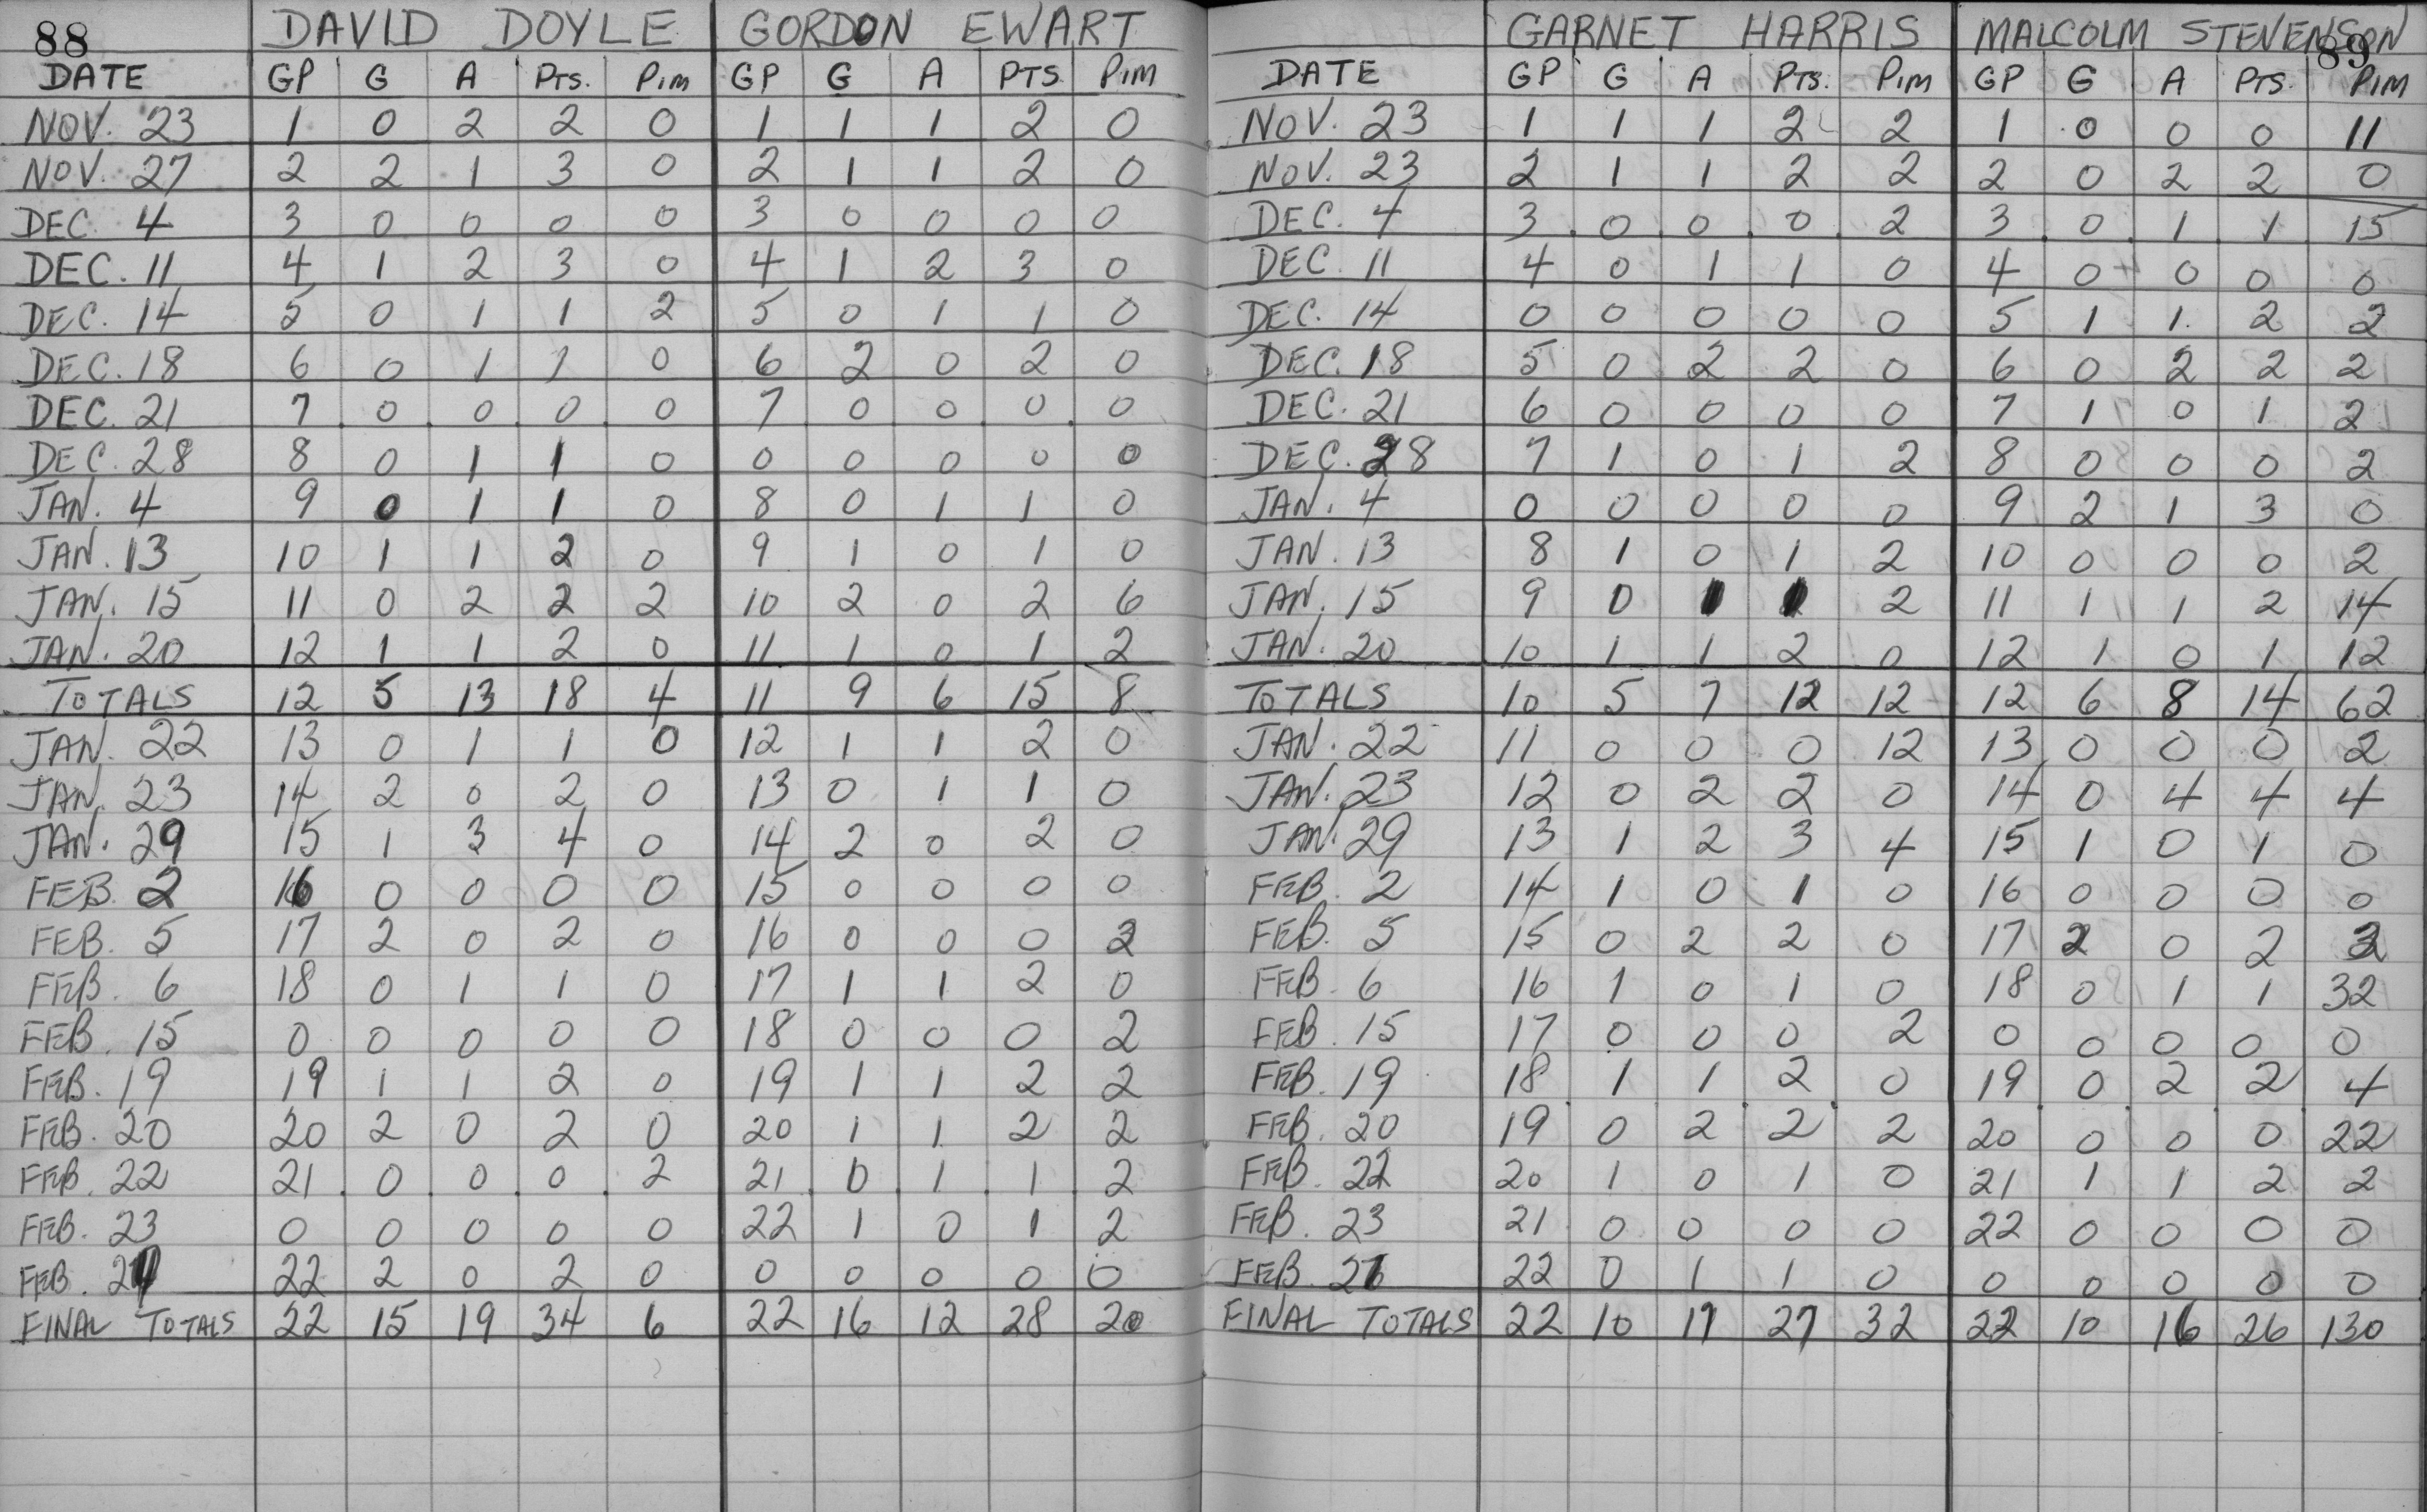 88 DAVID DOYLE GORDON EWART
DATE GP G A PTS. PIM GP G A PTS PIM
NOV. 23 1 0 2 2 0 1 1 1 2 0
NOV. 27 2 2 1 3 0 2 1 1 2 0
DEC. 4 3 0 0 0 0 3 0 0 0 0
DEC. 11 4 1 2 3 0 4 1 2 3 0
DEC. 14 5 0 1 1 2 5 0 1 1 0
DEC. 18 6 0 1 1 0 6 2 0 2 0
DEC. 21 7 0 0 0 0 7 0 0 0 0
DEC. 28 8 0 1 1 0 0 0 0 0 0
JAN. 4 9 0 1 1 0 8 0 1 1 0
JAN. 13 10 1 1 2 0 9 1 0 1 0
JAN. 15 11 0 2 2 2 10 2 0 2 6
JAN. 20 12 1 1 2 0 11 1 0 1 2
TOTALS 12 5 13 18 4 11 9 6 15 8
JAN. 22 13 0 1 1 0 12 1 1 2 0
JAN. 23 14 2 0 2 0 13 0 1 1 0
JAN. 29 15 1 3 4 0 14 2 0 2 0
FEB. 2 16 0 0 0 0 15 0 0 0 0
FEB. 5 17 2 0 2 0 16 0 0 0 2
FEB. 6 18 0 1 1 0 17 1 1 2 0
FEB. 15 0 0 0 0 0 18 0 0 0 2
FEB. 19 19 1 1 2 0 19 1 1 2 2
FEB. 20 20 2 0 2 0 20 1 1 2 2
FEB. 22 21 0 0 0 2 21 0 1 1 2
FEB. 23 0 0 0 0 0 22 1 0 1 2
FEB. 22 2 0 2 0 0 0 0 0 0
FINAL TOTALS 22 15 19 34 6 22 16 12 28 20
GARNET HARRIS MALCOLM STEVENSON 89
DATE GP G A PTS. PIM GP G A PTS. PIM
NOV. 23 1 1 1 2 2 1 0 0 0 11
NOV. 23 2 1 1 2 2 2 0 2 2 0
DEC. 4 3 0 0 0 2 3 0 1 1 15
DEC. 11 4 0 1 1 0 4 0 0 0 0
DEC. 14 0 0 0 0 0 5 1 1 2 2
DEC. 18 5 0 2 2 0 6 0 2 2 2
DEC. 21 6 0 0 0 0 7 1 0 1 2
DEC. 28 7 1 0 1 2 8 0 0 0 2
JAN. 4 0 0 0 0 0 9 2 1 3 0
JAN. 13 8 1 0 1 2 10 0 0 0 2
JAN. 15 9 0 1 1 2 11 1 1 2 14
JAN. 20 10 1 1 2 0 12 1 0 1 12
TOTALS 10 5 7 12 12 12 6 8 14 62
JAN. 22 11 0 0 0 12 13 0 0 0 2
JAN. 23 12 0 2 2 0 14 0 4 4 4
JAN. 29 13 1 2 3 4 15 1 0 1 0
FEB. 2 14 1 0 1 0 16 0 0 0 0
FEB. 5 15 0 2 2 0 17 2 0 2
FEB. 6 16 1 0 1 0 18 0 1 1 32
FEB. 15 17 0 0 0 2 0 0 0 0 0
FEB. 19 18 1 1 2 0 19 0 2 2 4
FEB. 20 19 0 2 2 2 20 0 0 0 22
FEB. 22 20 1 0 1 0 21 1 1 2 2
FEB. 23 21 0 0 0 0 22 0 0 0 0
FEB. 22 0 1 1 0 0 0 0 0 0
FINAL TOTALS 22 10 17 27 32 22 10 16 26 130